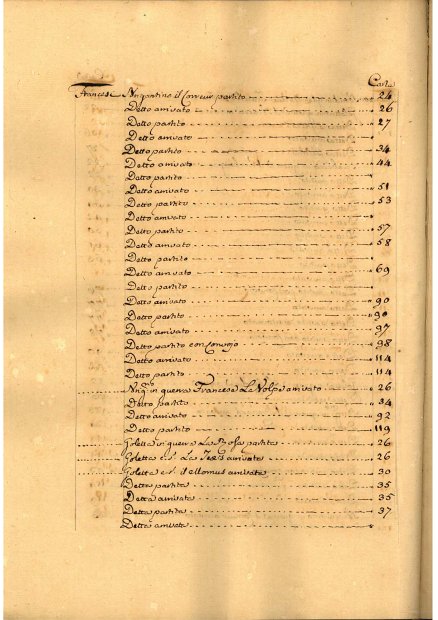 Carte
Francese Nrigantino il Correur partito 24
Detto arrivato 26
Detto partito 27
Detto arrivato
Detto partito 34
Detto arrivato 44
Detto partito
Detto arrivato 51
Detto partito 53
Detto arrivato
Detto partito 57
Detto arrivato 58
Detto partito
Detto arrivato 69
Detto partito
Detto arrivato 90
Detto partito 90
Detto arrivato 97
Detto partito con 98
Detto arrivato 114
Detto partito 114
in guerra Francese La Volpe arrivato 26
Detto partito 34
Detto arrivato 92
Detto partito 119
Goletta in guerra La Rosa partita 26
Goletta La arrivata 26
Goletta arrivata 30
Detta partita 35
Detta arrivata 35
Detta partita 37
Detta arrivata